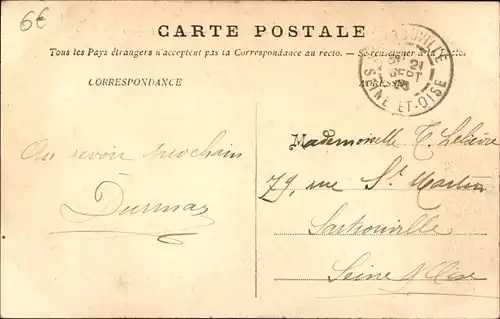 6€
CARTE POSTALE
Tous les Pays étrangers n'acceptent pas la Correspondance au recto. — Se renseigner à la Poste.
CORRESPONDANCE
ADRESSE
21
SEPT
05
SEINE ET-OISE
Au revoir prochain
Mademoiselle T. Lelièvre
79, rue St Martin
Sartrouville
Seine & Oise